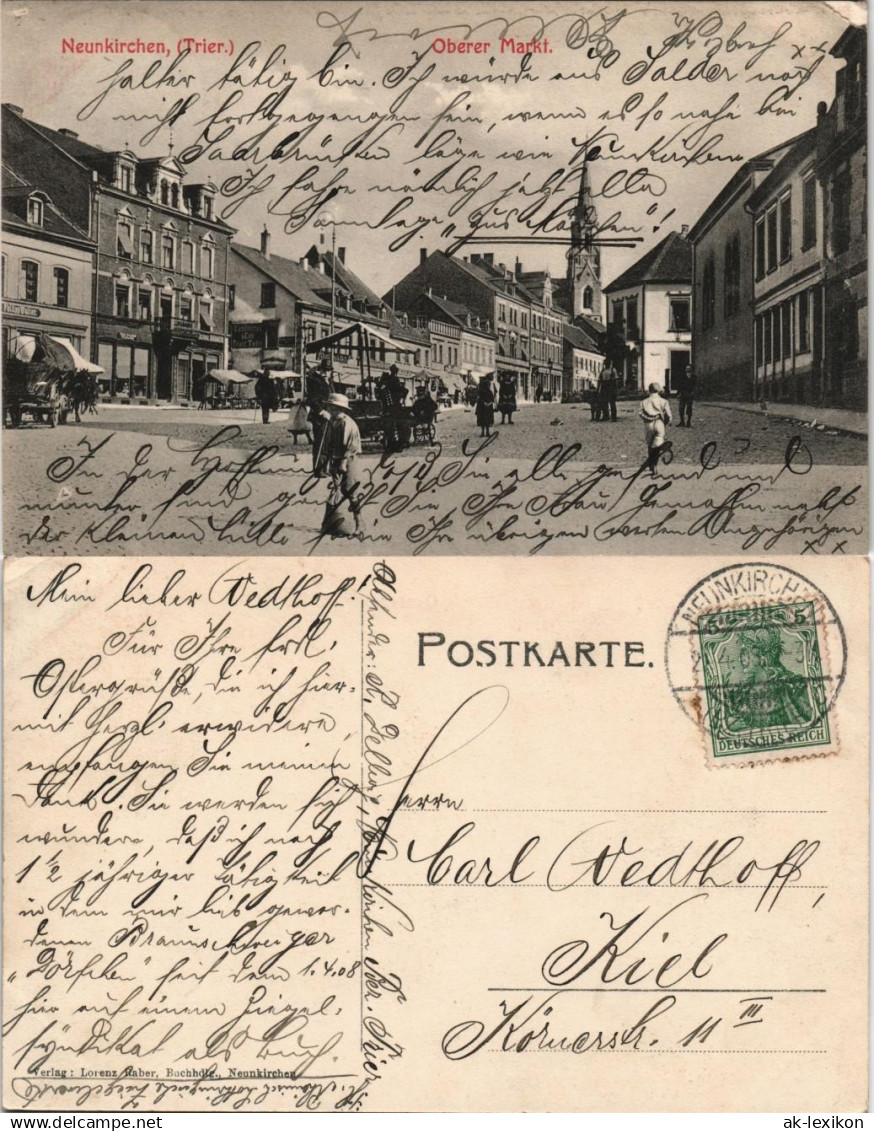 Neunkirchen, (Trier.)
Oberer Markt.
halter tätig bin. Ich würde aus Salder noch
nicht fortgegangen sein, wenn es so nahe bei
Saarbrücken läge wie Neunkirchen
Ich fahre nämlich jetzt alle
Sonntage "zus
In der Hoffnung, daß Sie alle gesund und
munter sind, Sie Ihre Frau Gemahlin nebst
der kleinen sowie Ihre übrigen werten Angehörigen
Mein lieber Vedthoff!
Für Ihre frdl.
Ostergrüße, die ich hier-
mit herzl. erwidere,
empfangen Sie meinen
Dank. Sie werden sich
wundern, daß ich nach
1 1/2 jähriger Tätigkeit
in dem mir lieb gewor-
denen Braunschweiger
"Dörfchen" seit dem 1.4.08
hier auf einem Ziegel-
syndikat als Buch-
Verlag: Lorenz Raber, Buchhdlg., Neunkirchen
Absender: Neunkirchen Bez. Trier
POSTKARTE.
NEUNKIRCHEN
5 5
DEUTSCHES REICH
Herrn
Carl Vedthoff,
Kiel
Körnerstr. 11 III
ak-lexikon.com